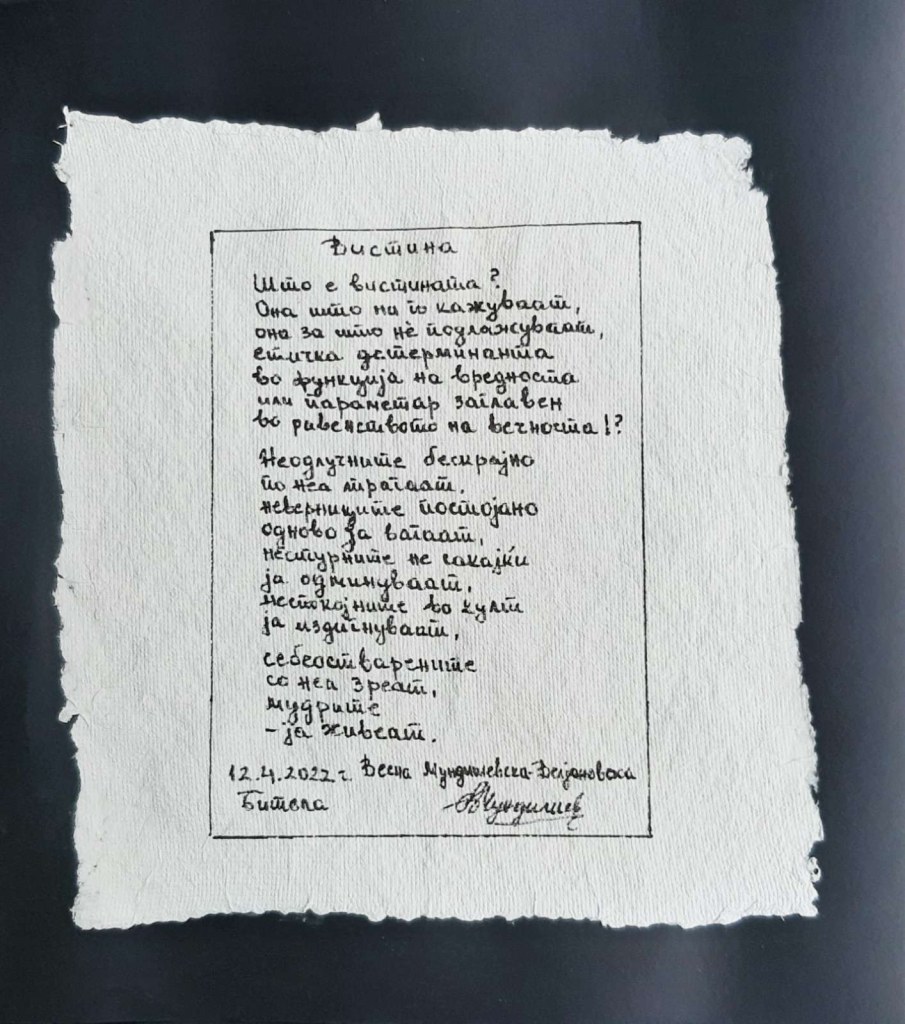 Вистина
Што е вистината?
Она што ни го кажуваат,
она за што нѐ подлажуваат,
етичка детерминанта
во функција на вредноста
или параметар заглавен
во равенството на вечноста!?
Неодлучните бескрајно
по неа трагаат,
неверниците постојано
одново ја вагаат,
несигурните не сакајќи
ја одминуваат,
неспокојните во култ
ја издигнуваат,
себеостварените
со неа зреат,
мудрите
- ја живеат.
12.4.2022 г. Весна Мундишевска-Велјановска
Битола